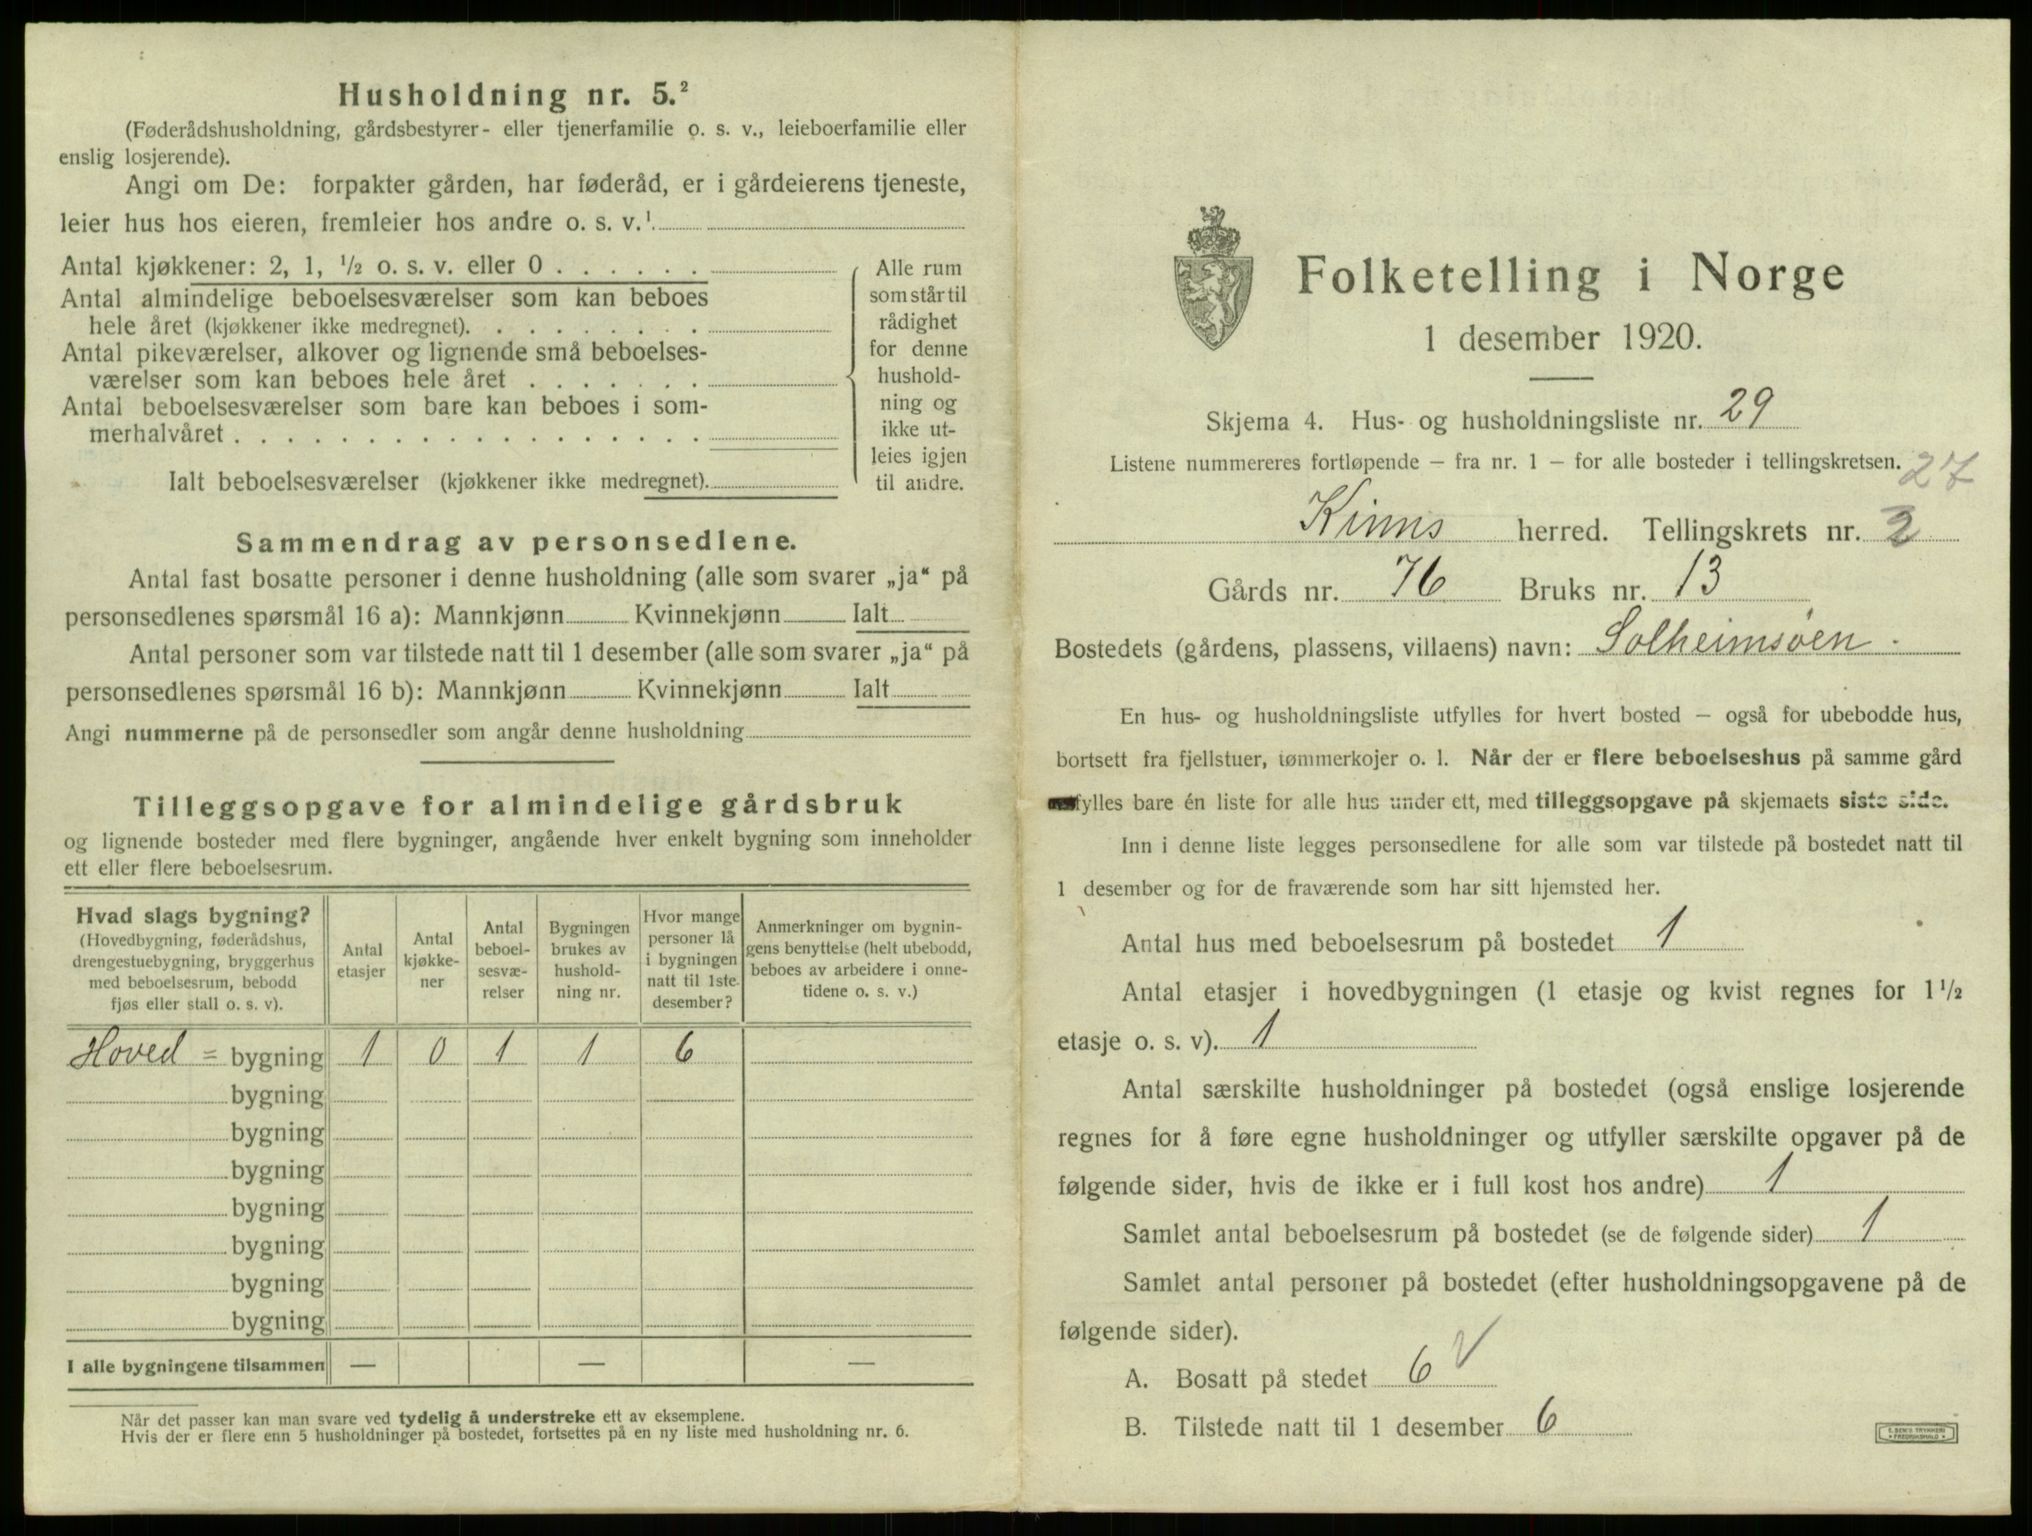 Husholdning nr. 5.²
(Føderådshusholdning, gårdsbestyrer- eller tjenerfamilie o. s. v., leieboerfamilie eller
enslig losjerende).
Angi om De: forpakter gården, har føderåd, er i gårdeierens tjeneste,
leier hus hos eieren, fremleier hos andre o. s. v.¹
Antal kjøkkener: 2, 1, ½ o. s. v. eller 0 . . . . . .
Antal almindelige beboelsesværelser som kan beboes
hele året (kjøkkener ikke medregnet). . . . . . . . .
Antal pikeværelser, alkover og lignende små beboelses-
værelser som kan beboes hele året . . . . . . .
Antal beboelsesværelser som bare kan beboes i som-
merhalvåret . . . . . . . . . . . . . . . . . .
Ialt beboelsesværelser (kjøkkener ikke medregnet).
Alle rum
som står til
rådighet
for denne
hushold-
ning og
ikke ut-
leies igjen
til andre.
Sammendrag av personsedlene.
Antal fast bosatte personer i denne husholdning (alle som svarer „ja“ på
personsedlenes spørsmål 16 a): Mannkjønn Kvinnekjønn Ialt
Antal personer som var tilstede natt til 1 desember (alle som svarer „ja“ på
personsedlenes spørsmål 16 b): Mannkjønn Kvinnekjønn Ialt
Angi nummerne på de personsedler som angår denne husholdning
Tilleggsopgave for almindelige gårdsbruk
og lignende bosteder med flere bygninger, angående hver enkelt bygning som inneholder
ett eller flere beboelsesrum.
Hvad slags bygning?
(Hovedbygning, føderådshus,
drengestuebygning, bryggerhus
med beboelsesrum, bebodd
fjøs eller stall o. s. v).
Antal
etasjer
Antal
kjøkke-
ner
Antal
beboel-
sesvæ-
relser
Bygningen
brukes av
hushold-
ning nr.
Hvor mange
personer lå
i bygningen
natt til 1ste
desember?
Anmerkninger om bygnin-
gens benyttelse (helt ubebodd,
beboes av arbeidere i onne-
tidene o. s. v.)
Hoved = bygning 1 0 1 1 6
bygning
bygning
bygning
bygning
bygning
bygning
bygning
I alle bygningene tilsammen — — —
Når det passer kan man svare ved tydelig å understreke ett av eksemplene.
Hvis der er flere enn 5 husholdninger på bostedet, fortsettes på en ny liste med husholdning nr. 6.
Folketelling i Norge
1 desember 1920.
Skjema 4. Hus- og husholdningsliste nr. 29
Listene nummereres fortløpende – fra nr. 1 – for alle bosteder i tellingskretsen. 27
Kinns herred. Tellingskrets nr. 2
Gårds nr. 76 Bruks nr. 13
Bostedets (gårdens, plassens, villaens) navn: Solheimsøen.
En hus- og husholdningsliste utfylles for hvert bosted – også for ubebodde hus,
bortsett fra fjellstuer, tømmerkojer o. l. Når der er flere beboelseshus på samme gård
fylles bare én liste for alle hus under ett, med tilleggsopgave på skjemaets siste side.
Inn i denne liste legges personsedlene for alle som var tilstede på bostedet natt til
1 desember og for de fraværende som har sitt hjemsted her.
Antal hus med beboelsesrum på bostedet 1
Antal etasjer i hovedbygningen (1 etasje og kvist regnes for 1½
etasje o. s. v). 1
Antal særskilte husholdninger på bostedet (også enslige losjerende
regnes for å føre egne husholdninger og utfyller særskilte opgaver på de
følgende sider, hvis de ikke er i full kost hos andre) 1
Samlet antal beboelsesrum på bostedet (se de følgende sider) 1
Samlet antal personer på bostedet (efter husholdningsopgavene på de
følgende sider).
A. Bosatt på stedet 6 V
B. Tilstede natt til 1 desember 6